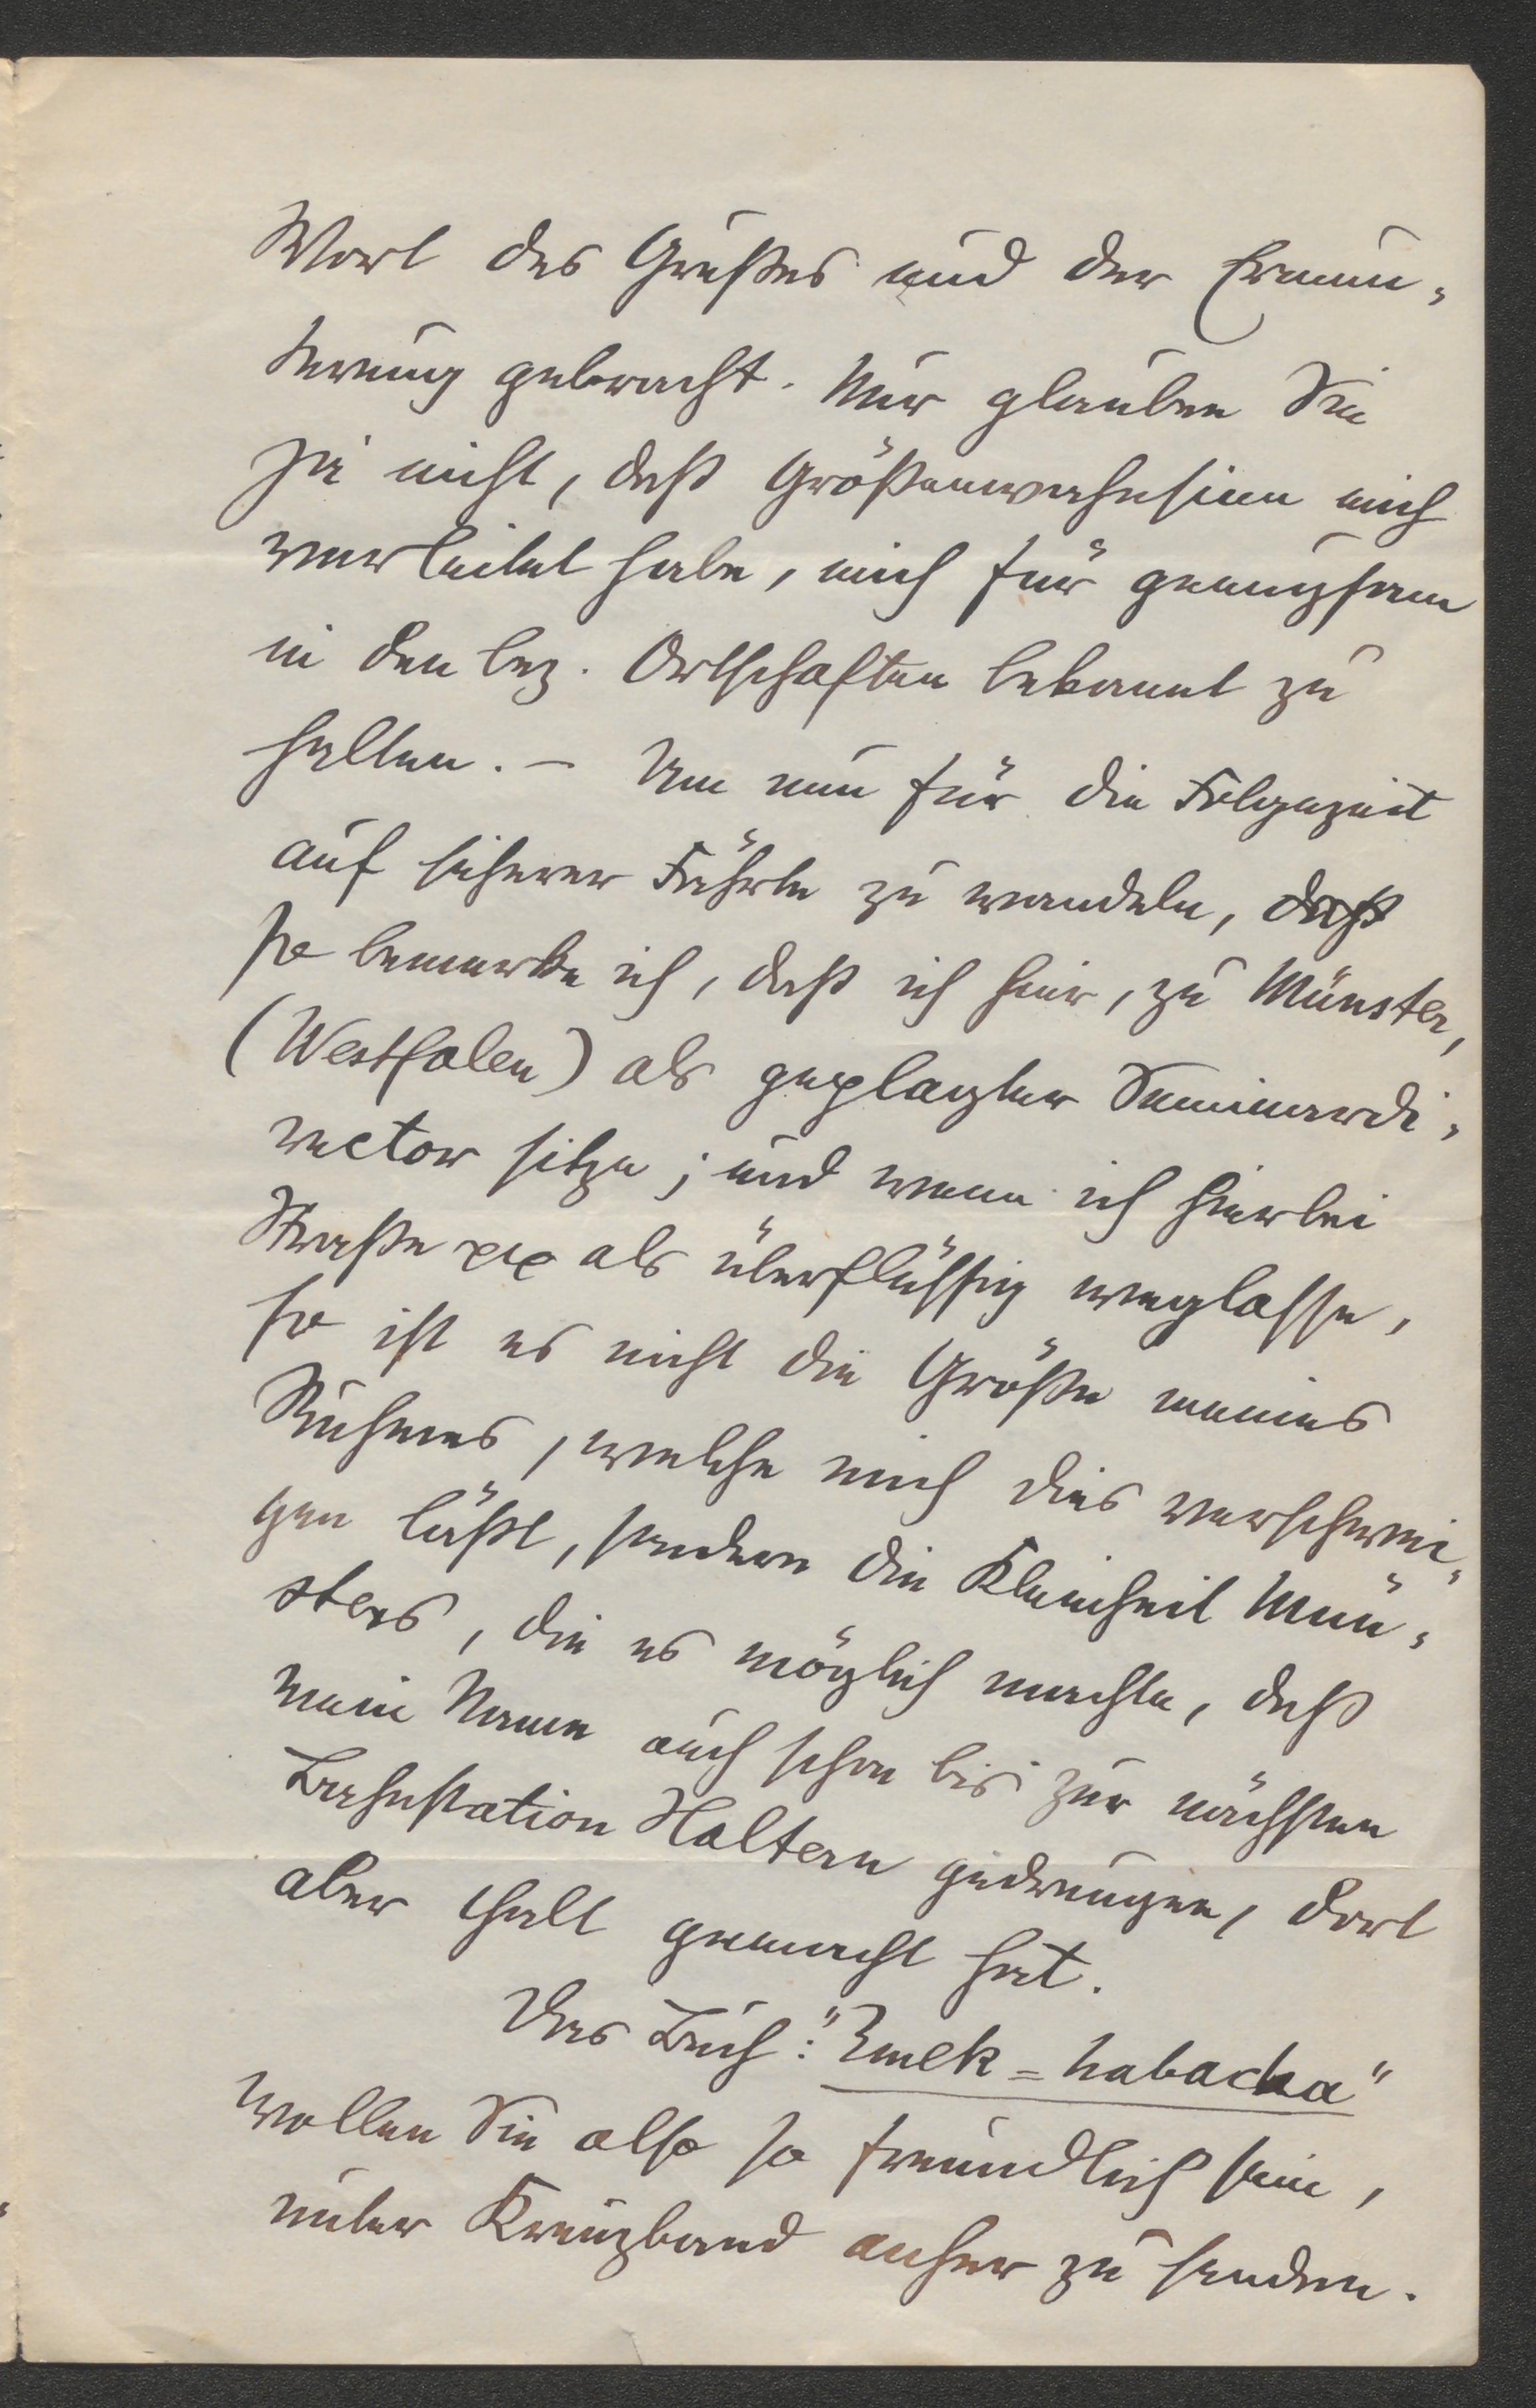 Wort des Grußes und der Ermun-
terung gebracht. Nur glauben Sie
ja nicht, daß Größenwahnsinn mich
verleitet habe, mich für genugsam
in den bez. Ortschaften bekannt zu
halten. – Um nun für die Folgezeit
auf sicherer Fährte zu wandeln, daß
so bemerke ich, daß ich hier, zu Münster,
(Westfalen) als geplagter Seminardi-
rector sitze; und wenn ich hierbei
Straße pp als überflüssig weglasse,
so ist es nicht die Größe meines
Ruhmes, welche mich dies verschwei-
gen läßt, sondern die Kleinheit Mün-
sters, die es möglich machte, daß
mein Name auch schon bis zur nächsten
Bahnstation Haltern gedrungen, dort
aber Halt gemacht hat.
Das Buch: "Emek=habacha"
wollen Sie also so freundlich sein,
unter Kreuzband anher zu senden.